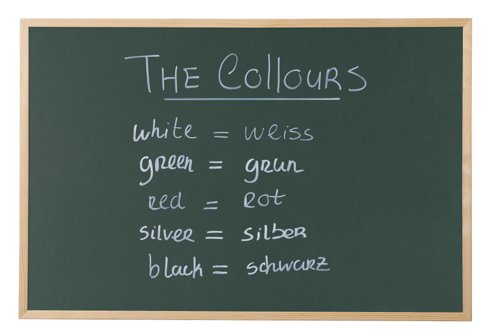 THE COLLOURS
white = weiss
green = grun
red = rot
silver = silber
black = schwarz